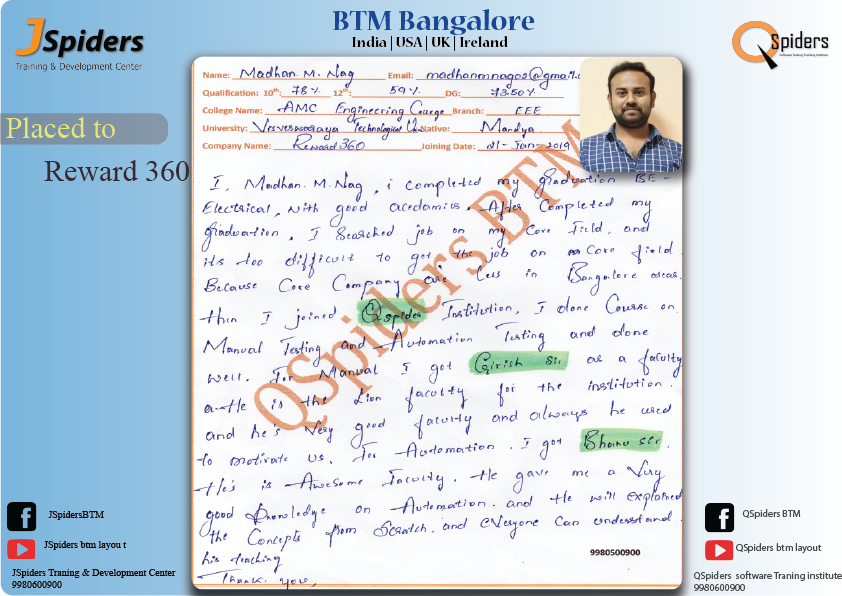 BTM Bangalore
India | USA | UK | Ireland
JSpiders
Training & Development Center
QSpiders
Software Training Institute
Placed to
Reward 360
Name: Madhan. M. Nag Email: madhanmnag02@gmail.c
Qualification: 10th: 78% 12th: 59% DG: 73.50%
College Name: AMC Engineering College Branch: EEE
University: Visveswaraya Technological Uni Native: Mandya
Company Name: Reward 360 Joining Date: 21-Jan-2019
QSpiders BTM
I, Madhan. M. Nag, i completed my graduation BE-
Electrical, with good acedamics. After Completed my
graduation, I Searched job on my Core field, and
its too difficult to get the job on Core field
Because Core Company are less in Bangalore areas.
then I joined Qspider Institution, I done Course on
Manual Testing and Automation Testing and done
well. For Manual I got Girish Sir as a faculty
He is the Lion faculty for the institution.
and he's very good faculty and always he used
to motivate us. For Automation, I got Bhanu Sir.
He's is Awesome Faculty. He gave me a Very
good knowledge on Automation. and He will explained
the Concepts from Scratch. and everyone Can understand
his teaching
Thank you,
9980500900
JSpidersBTM
JSpiders btm layou t
JSpiders Traning & Development Center
9980600900
QSpiders BTM
QSpiders btm layout
QSpiders software Traning institute
9980600900